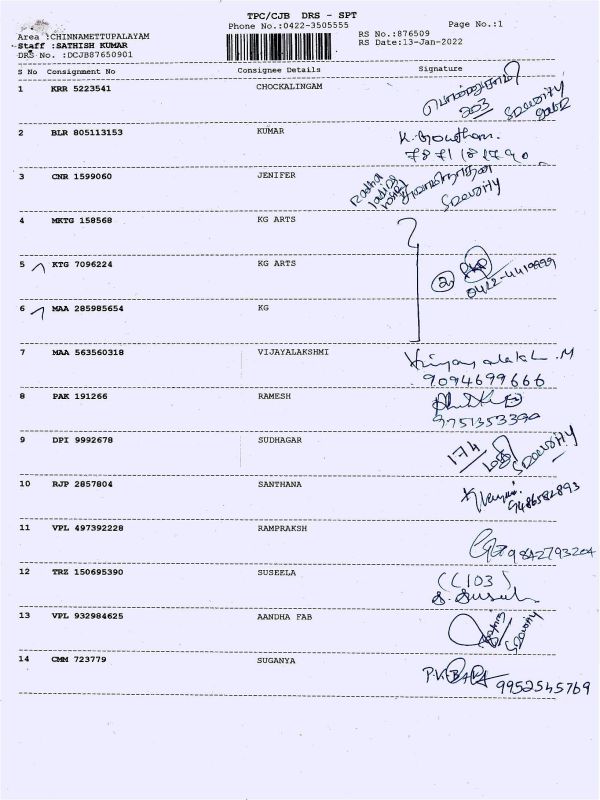 TPC/CJB DRS - SPT
Phone No.:0422-3505555
Page No.:1
Area :CHINNAMETTUPALAYAM
Staff :SATHISH KUMAR
DRS No. :DCJB87650901
RS No.:876509
RS Date:13-Jan-2022
S No Consignment No Consignee Details Signature
1 KRR 5223541 CHOCKALINGAM
203 Security
2 BLR 805113153 KUMAR K. Gowtham.
3 CNR 1599060 JENIFER
Security
4 MKTG 158568 KG ARTS
5 KTG 7096224 KG ARTS
6 MAA 285985654 KG
7 MAA 563560318 VIJAYALAKSHMI
9094699666
8 PAK 191266 RAMESH
9751353390
9 DPI 9992678 SUDHAGAR
174 Security
10 RJP 2857804 SANTHANA
9486582893
11 VPL 497392228 RAMPRAKSH
9842793204
12 TRZ 150695390 SUSEELA
13 VPL 932984625 AANDHA FAB
Security
14 CMM 723779 SUGANYA
9952545769